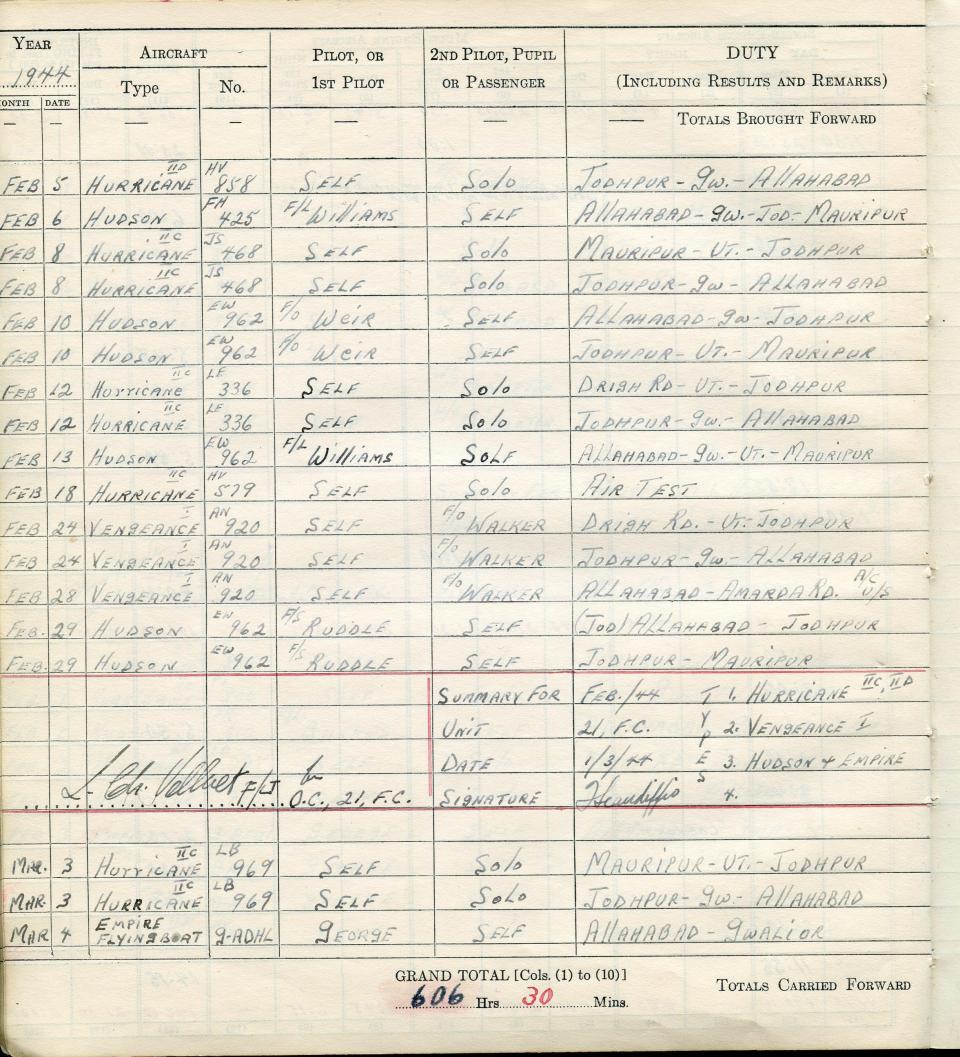 YEAR 1944 AIRCRAFT PILOT, OR 1ST PILOT 2ND PILOT, PUPIL OR PASSENGER DUTY (INCLUDING RESULTS AND REMARKS)
MONTH DATE Type No.
— — — — — — —— TOTALS BROUGHT FORWARD
FEB 5 HURRICANE IID HV 858 SELF SOLO JODHPUR - GW. - ALLAHABAD
FEB 6 HUDSON FH 425 F/L WILLIAMS SELF ALLAHABAD - GW. - JOD - MAURIPUR
FEB 8 HURRICANE IIC JS 468 SELF SOLO MAURIPUR - UT. - JODHPUR
FEB 8 HURRICANE IIC JS 468 SELF SOLO JODHPUR - GW - ALLAHABAD
FEB 10 HUDSON EW 962 F/O WEIR SELF ALLAHABAD - GW - JODHPUR
FEB 10 HUDSON EW 962 F/O WEIR SELF JODHPUR - UT. - MAURIPUR
FEB 12 HURRICANE IIC LE 336 SELF SOLO DRIGH RD - UT. - JODHPUR
FEB 12 HURRICANE IIC LE 336 SELF SOLO JODHPUR - GW. - ALLAHABAD
FEB 13 HUDSON EW 962 F/L WILLIAMS SOLF ALLAHABAD - GW. - UT. - MAURIPUR
FEB 18 HURRICANE IIC HV 579 SELF SOLO AIR TEST
FEB 24 VENGEANCE I AN 920 SELF F/O WALKER DRIGH RD. - UT. - JODHPUR
FEB 24 VENGEANCE I AN 920 SELF F/O WALKER JODHPUR - GW. - ALLAHABAD
FEB 28 VENGEANCE I AN 920 SELF F/O WALKER ALLAHABAD - AMARDA RD. A/C U/S
FEB. 29 HUDSON EW 962 F/S RUDDLE SELF (JOD) ALLAHABAD - JODHPUR
FEB. 29 HUDSON EW 962 F/S RUDDLE SELF JODHPUR - MAURIPUR
SUMMARY FOR FEB./44 TYPES 1. HURRICANE IIC, IID
UNIT 21, F.C. 2. VENGEANCE I
DATE 1/3/44 3. HUDSON & EMPIRE
F/LT O.C., 21, F.C. SIGNATURE 4.
MAR. 3 HURRICANE IIC LB 969 SELF SOLO MAURIPUR - UT. - JODHPUR
MAR 3 HURRICANE IIC LB 969 SELF SOLO JODHPUR - GW. - ALLAHABAD
MAR 4 EMPIRE FLYINGBOAT G-ADHL GEORGE SELF ALLAHABAD - GWALIOR
GRAND TOTAL [Cols. (1) to (10)]
606 Hrs. 30 Mins.
TOTALS CARRIED FORWARD